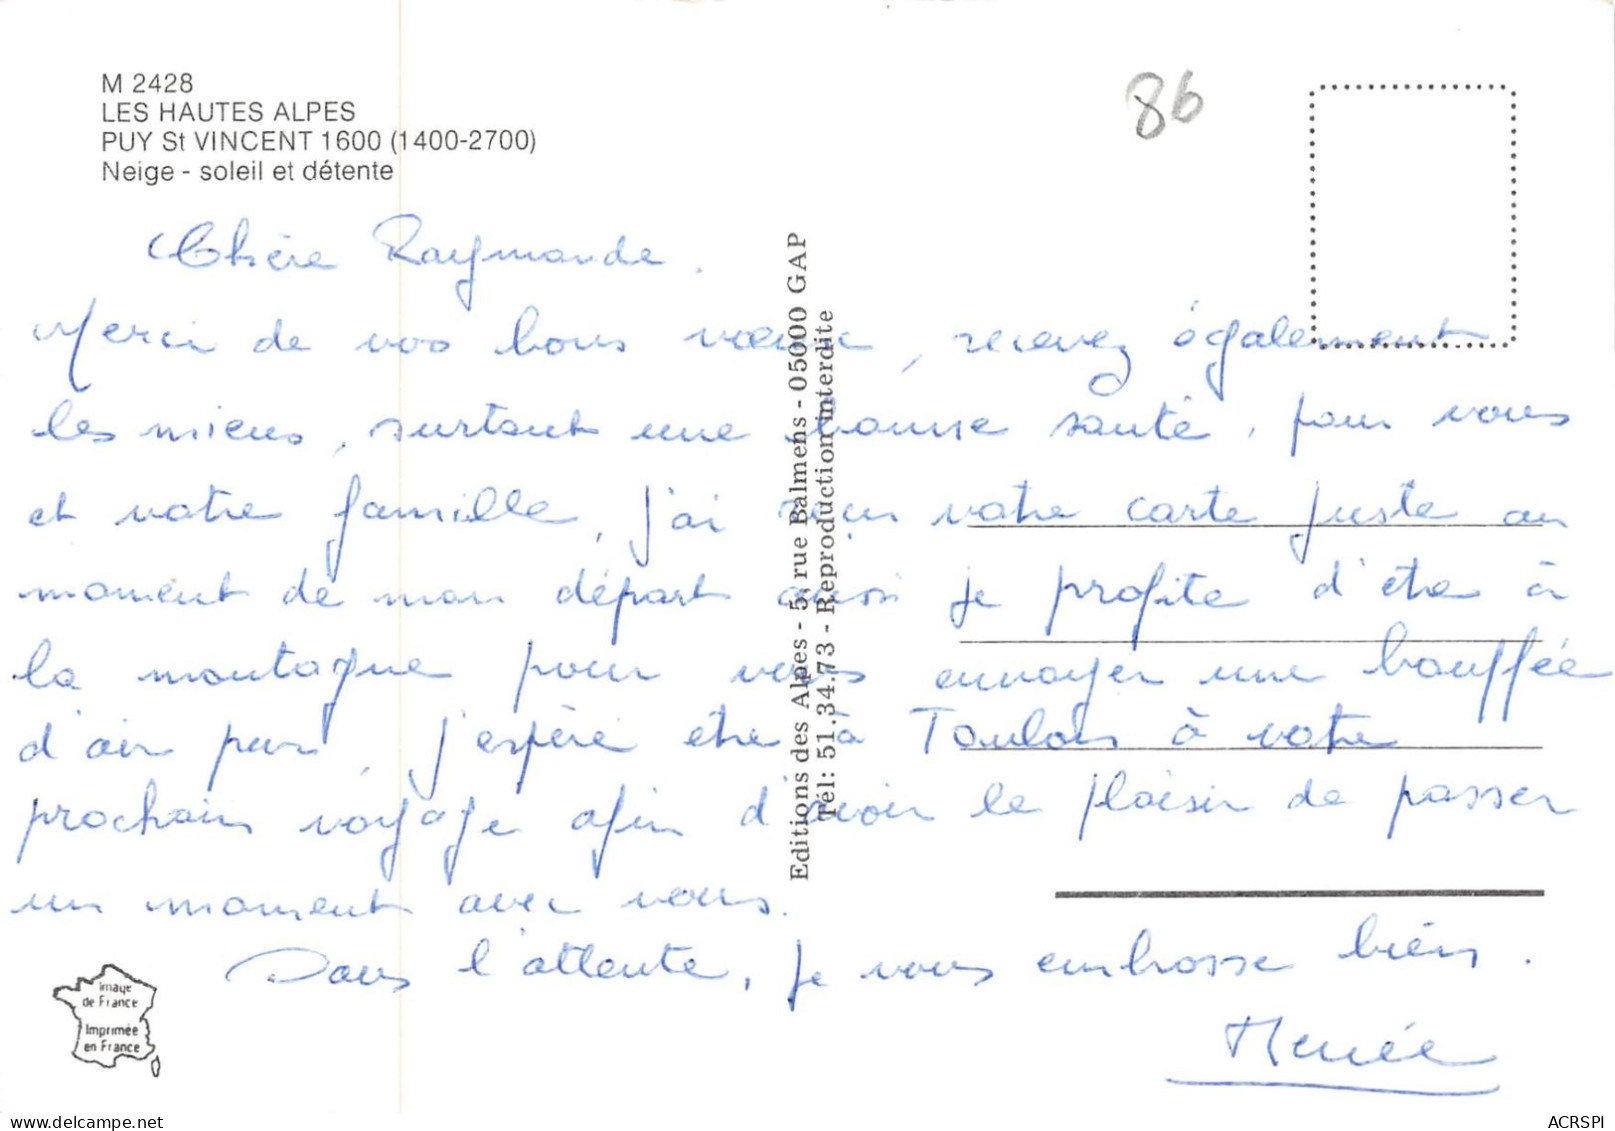 M 2428
LES HAUTES ALPES
PUY St VINCENT 1600 (1400-2700)
Neige - soleil et détente
86
Chère Raymonde.
Merci de vos bons vœux, recevez également
les miens, surtout une bonne santé, pour vous
et votre famille, j'ai reçu votre carte juste au
moment de mon départ aussi je profite d'être à
la montagne pour vous envoyer une bouffée
d'air pur, j'espère être à Toulon à votre
prochain voyage afin d'avoir le plaisir de passer
un moment avec vous.
Dans l'attente, je vous embrasse bien.
Renée
Editions des Alpes - 5, rue Balmens - 05000 GAP
Tél: 51.34.73 - Reproduction interdite
image
de France
Imprimée
en France
ACRSPI